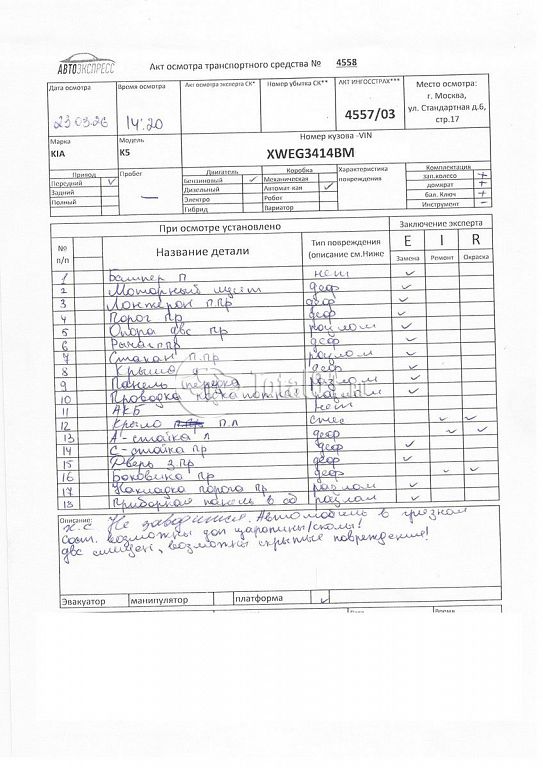 АВТОЭКСПРЕСС
Акт осмотра транспортного средства № 4558
Дата осмотра
23 03 26
Время осмотра
14:20
Акт осмотра эксперта СК*
Номер убытка СК**
АКТ ИНГОССТРАХ***
4557/03
Место осмотра:
г. Москва,
ул. Стандартная д.6,
стр.17
Марка
KIA
Модель
K5
Номер кузова -VIN
XWEG3414BM
Привод
Передний ✓
Задний
Полный
Пробег
—
Двигатель
Бензиновый ✓
Дизельный
Электро
Гибрид
Коробка
Механическая
Автомат-кая ✓
Робот
Вариатор
Характеристика
повреждения
Комплектация
зап.колесо +
домкрат +
бал. Ключ +
Инструмент -
При осмотре установлено
Заключение эксперта
№ п/п
Название детали
Тип повреждения
(описание см.Ниже
E I R
Замена Ремонт Окраска
1 Бампер П нет ✓
2 Моторный щит деф ✓
3 Лонжерон п.пр деф ✓
4 Порог пр деф ✓
5 Опора двс пр разлом ✓
6 Рычаг п.пр деф ✓
7 Стакан п.пр разлом ✓
8 Крыша деф ✓
9 Панель передка разлом ✓
10 Проводка разлом ✓
11 АКБ нет
12 Крыло п.л ✓ ✓
13 А-стойка л деф ✓ ✓
14 С-стойка пр деф ✓
15 Дверь з.пр деф ✓
16 Боковина пр деф ✓ ✓
17 Накладка порога пр разлом ✓
18 Приборная панель в сб разлом ✓
Описание:
х.с Не заводится. Автомобиль в грязном
сост. возможны доп царапины/сколы!
двс смещен, возможны скрытые повреждения!
Эвакуатор манипулятор платформа ✓